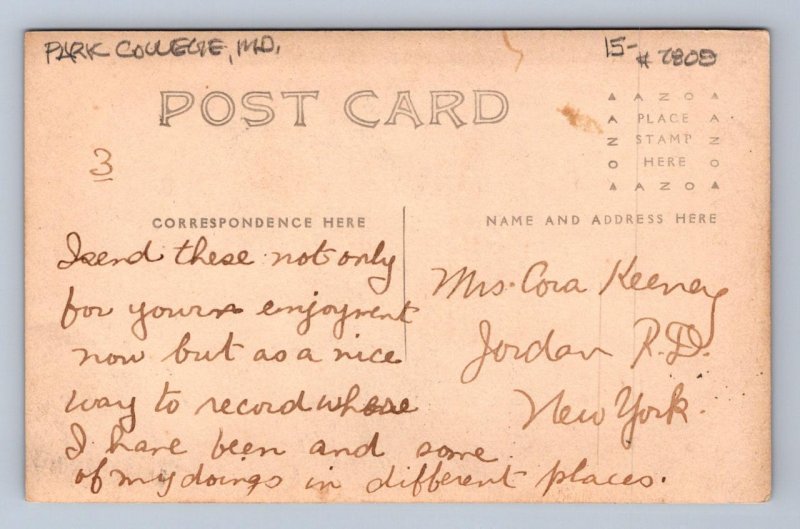 PARK COLLEGE, MO.
15-
# 7808
POST CARD
AZO
PLACE
STAMP
HERE
AZO
3
CORRESPONDENCE HERE
NAME AND ADDRESS HERE
I send these not only
for your enjoyment
now but as a nice
way to record where
I have been and some
of my doings in different places.
Mrs. Cora Keeney
Jordan R.D.
New York.